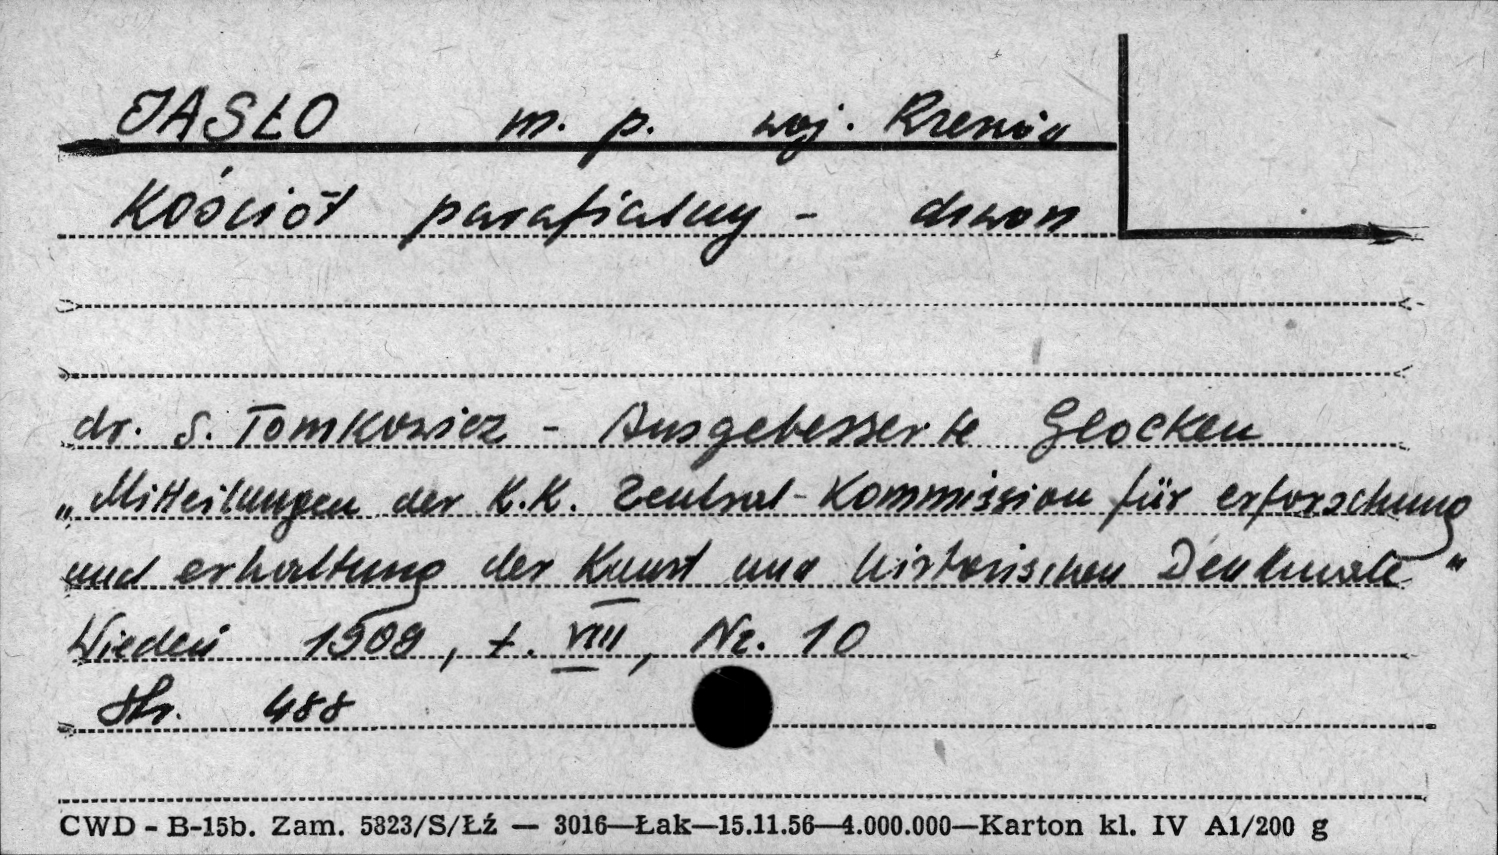 JASŁO m. p. woj. Rzeszów
Kościół parafialny - dzwon
dr. S. Tomkowicz - Ausgebesserte Glocken
„Mitteilungen der K.K. Zentral-Kommission für erforschung
und erhaltung der Kunst und historischen Denkmale"
Wiedeń 1909, t. VIII, Nr. 10
str. 488
CWD - B-15b. Zam. 5823/S/Łź — 3016—Łak—15.11.56—4.000.000—Karton kl. IV A1/200 g